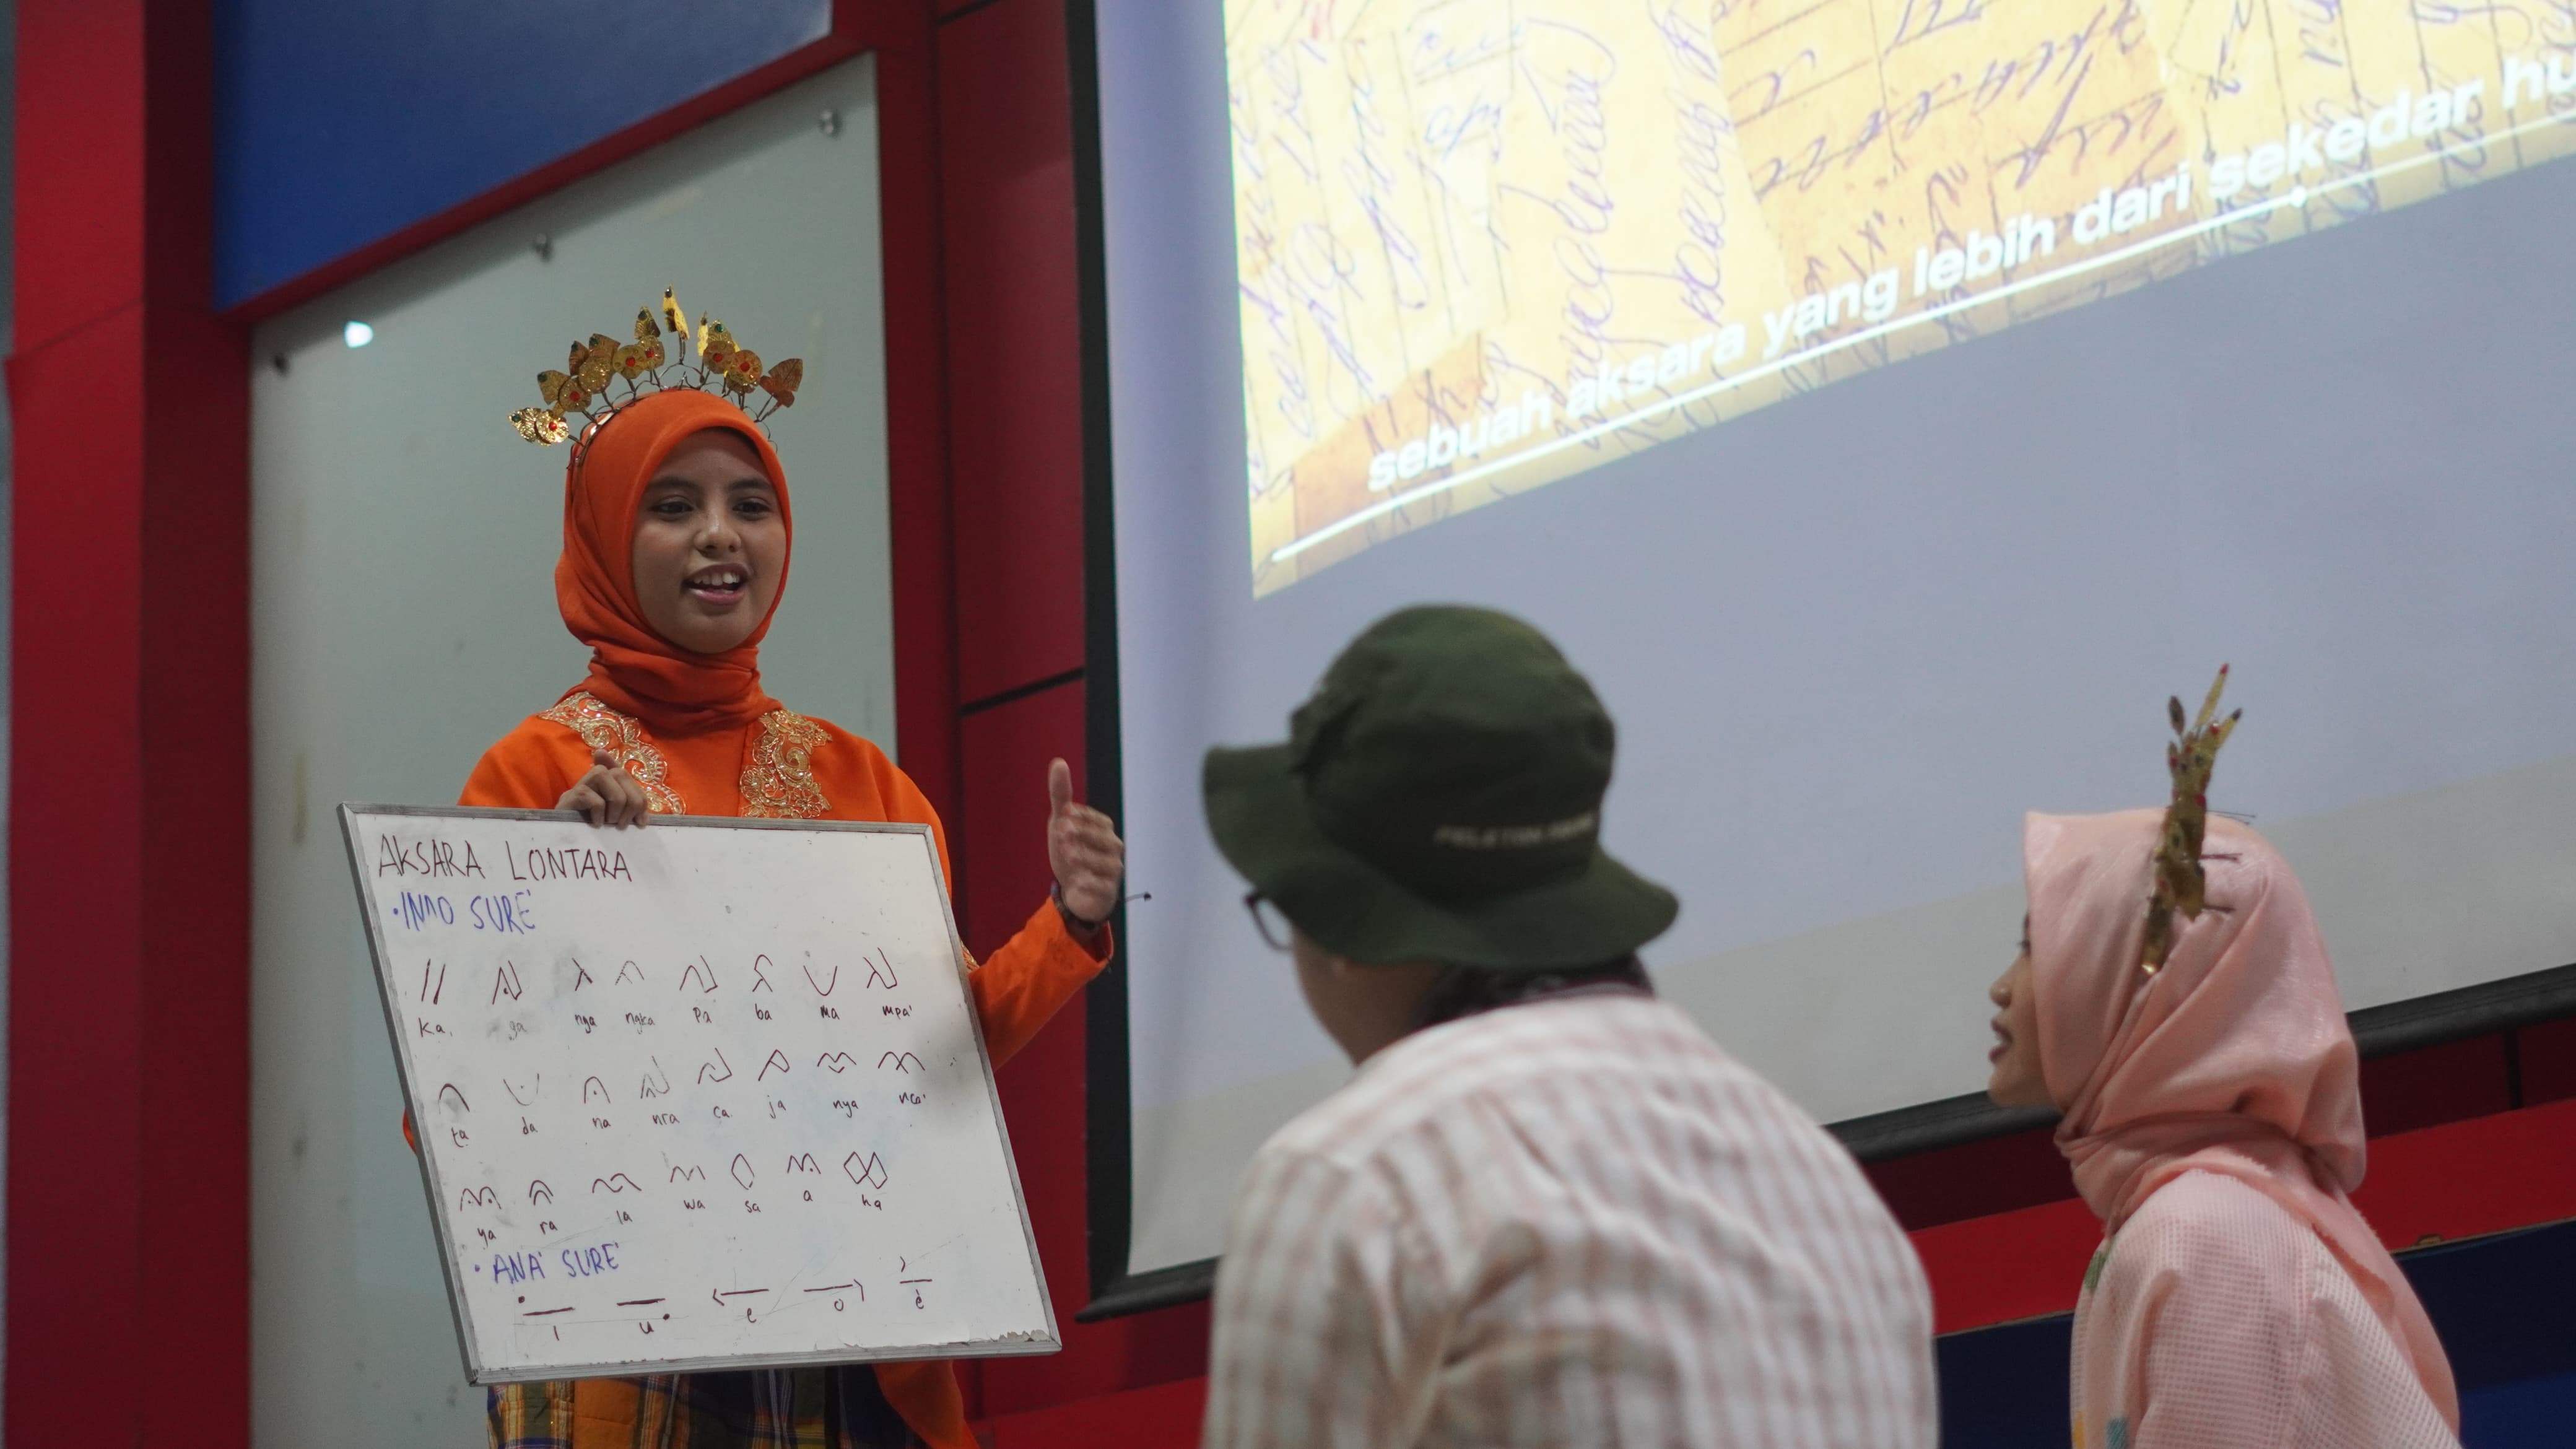 sebuah aksara yang lebih dari sekedar
AKSARA LONTARA
• INDO SURE'
ᨀ ᨁ ᨂ ᨃ ᨄ ᨅ ᨆ ᨇ
ka ga nga ngka pa ba ma mpa'
ᨈ ᨉ ᨊ ᨋ ᨌ ᨍ ᨎ ᨏ
ta da na nra ca ja nya nca'
ᨐ ᨑ ᨒ ᨓ ᨔ ᨕ ᨖ
ya ra la wa sa a ha
• ANA' SURE'
i u e o è